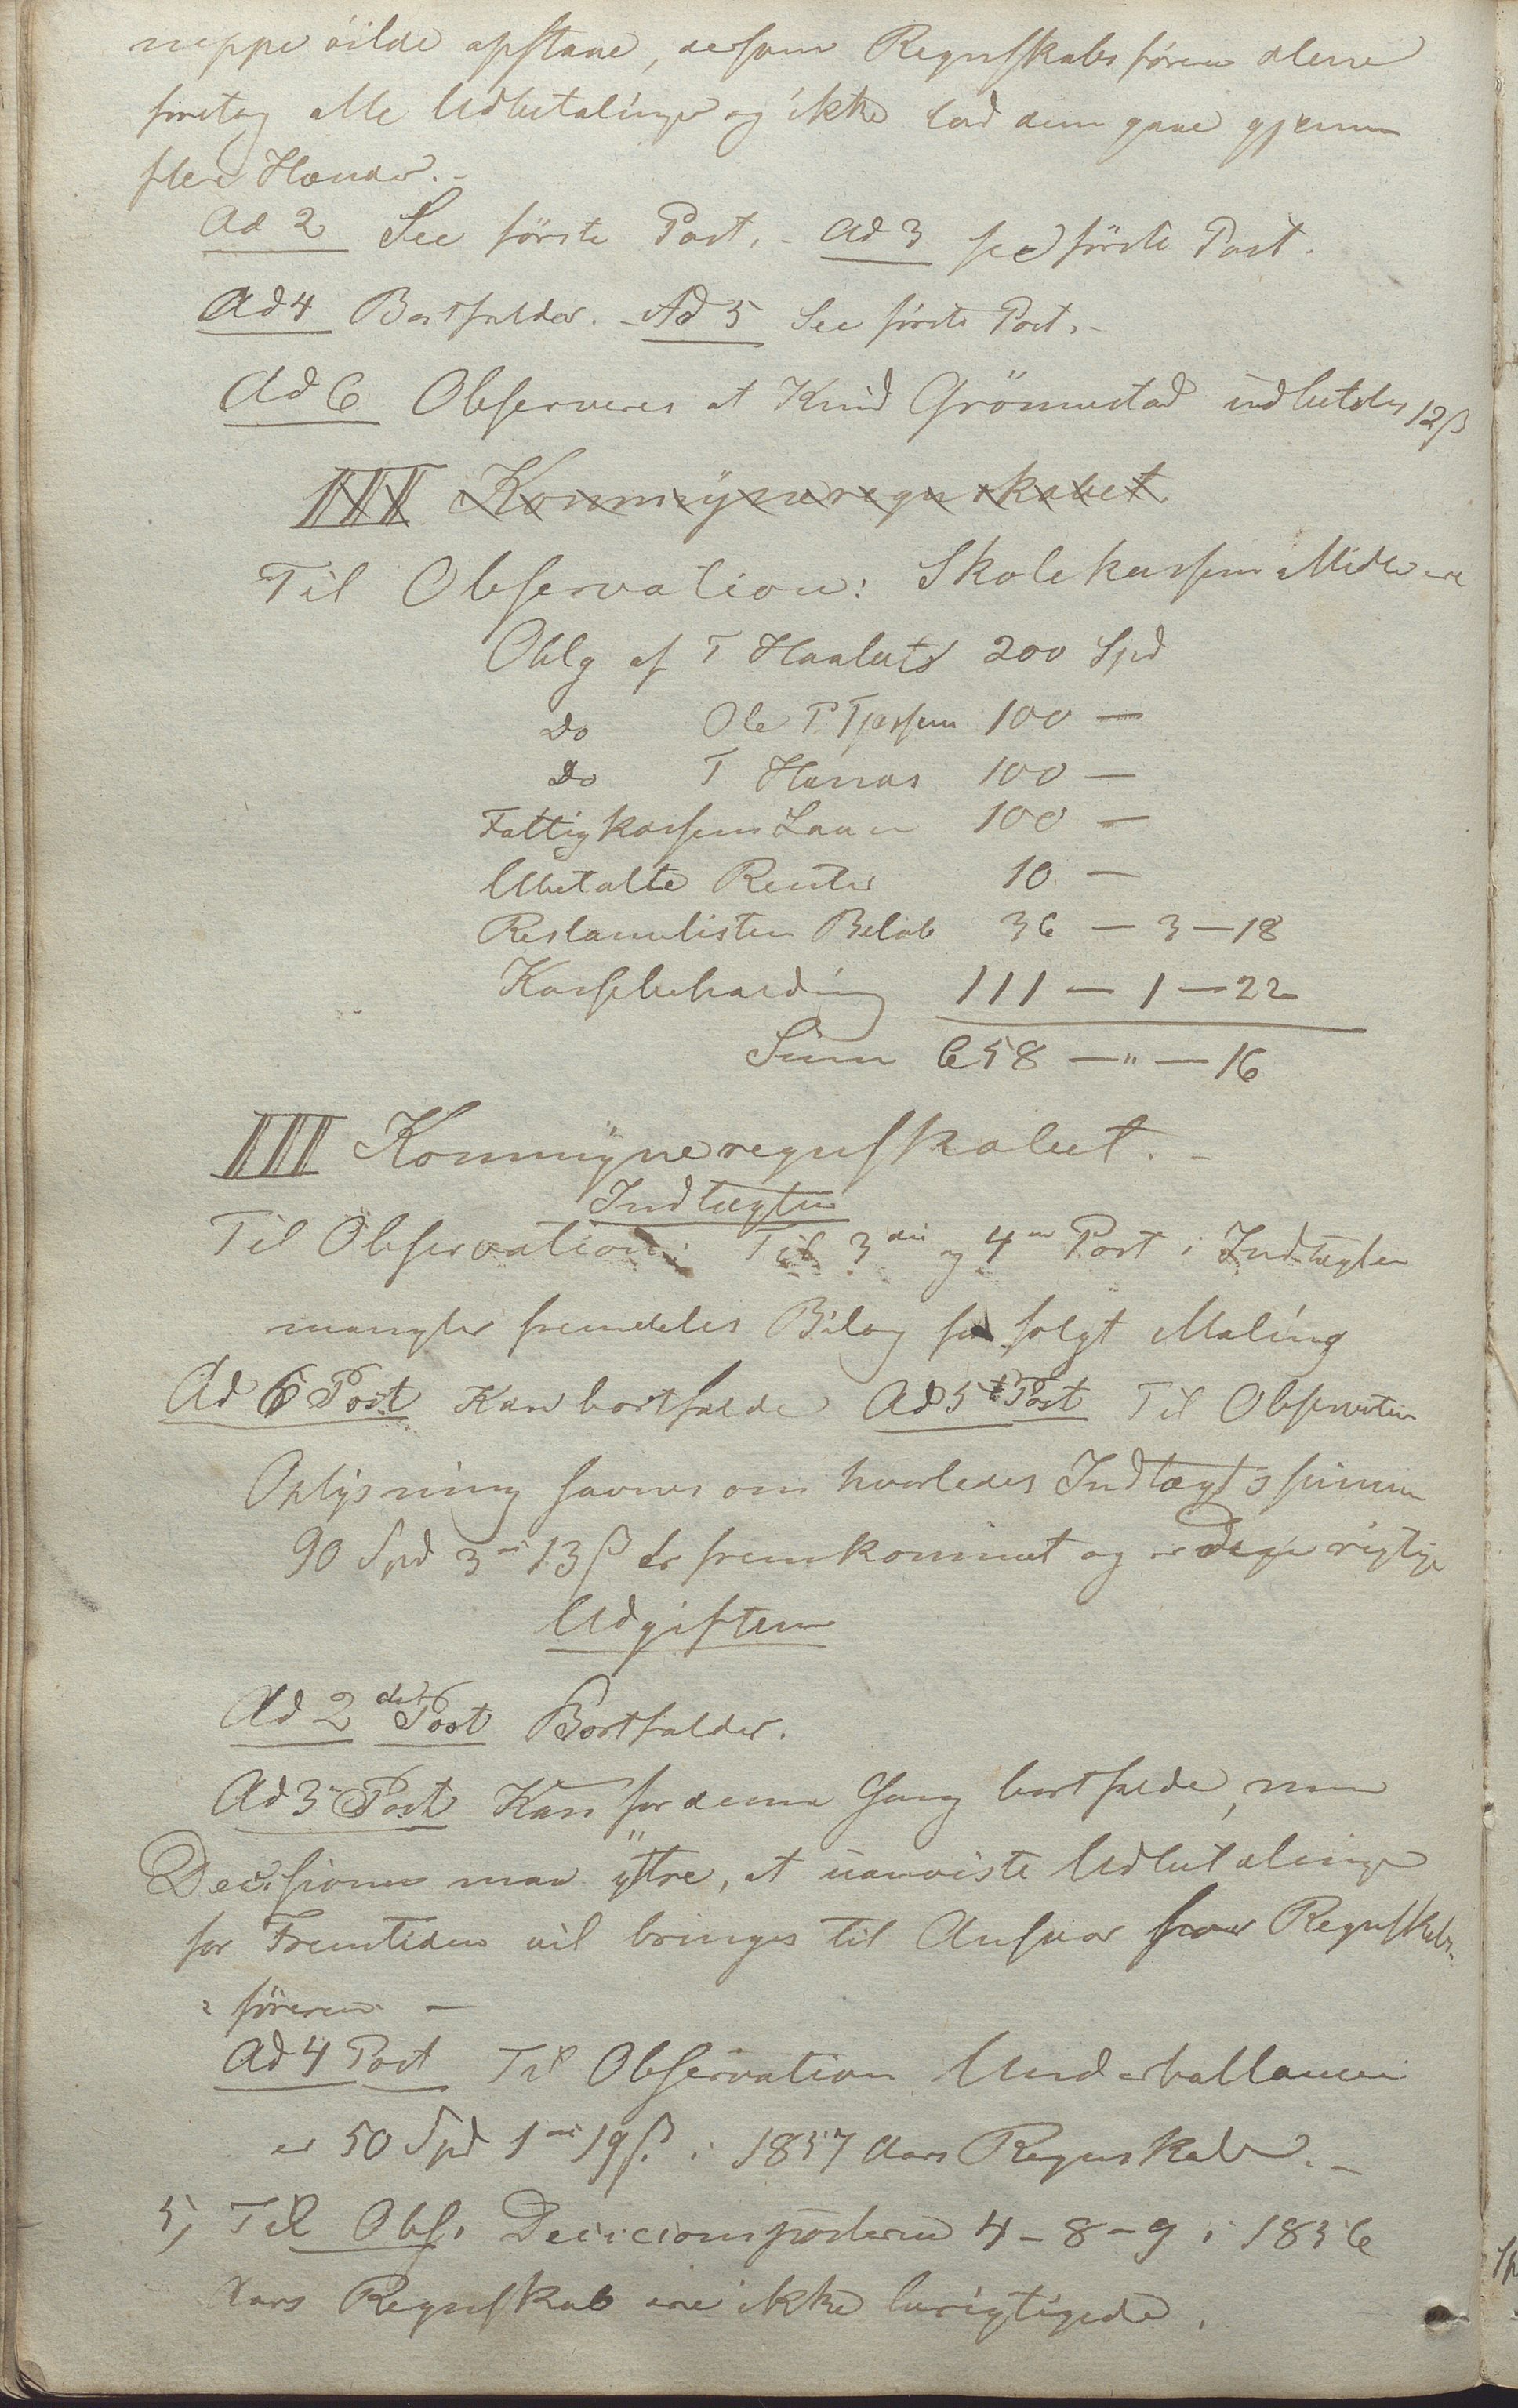 neppe vilde opstaae, dersom Regnskabsføreren alene
foretog alle Udbetalinger og ikke lod dem gaae gjennem
flere Hænder. -
Ad 2 See første Post. - Ad 3 see første Post.
Ad 4 Bortfalder. - Ad 5 See første Post. -
Ad 6 Observeres at Knud Grønnestad indbetaler 12 ß
III Kommuneregnskabet.
Til Observation: Skolekassens Midler ere
Oblg af T Haaland 200 Spd
Do Ole T. Tjessem 100 —
Do T Hanas 100 —
Fattigkassens Laan 100 —
Ubetalte Renter 10 —
Restancelistens Beløb 36 — 3 — 18
Kassebeholdning 111 — 1 — 22
Summ 658 — " — 16
III Kommuneregnskabet. -
Indtægten
Til Observation: Til 3die og 4de Post i Indtægten
mangler fremdeles Bilag for solgt Maling
Ad 6 Post Kan bortfalde Ad 5te Post Til Observation
Oplysning savnes om hvorledes Indtægtssummen
90 Spd 3 mk 13 ß er fremkommet og rigtige
Udgiften
Ad 2det Post Bortfalder.
Ad 3 Post Kan for denne Gang bortfalde, men
Decisionen maa yttre, at uanviste Udbetalinger
for Fremtiden vil bringes til Ansvar for Regnskabs-
føreren. —
Ad 4 Post Til Observation Underballancen
er 50 Spd 1 mk 19 ß. i 1857 Aars Regnskab. -
5, Til Obs. Decicionsposterne 4 - 8 - 9 i 1856
Aars Regnskab ere ikke berigtigede.